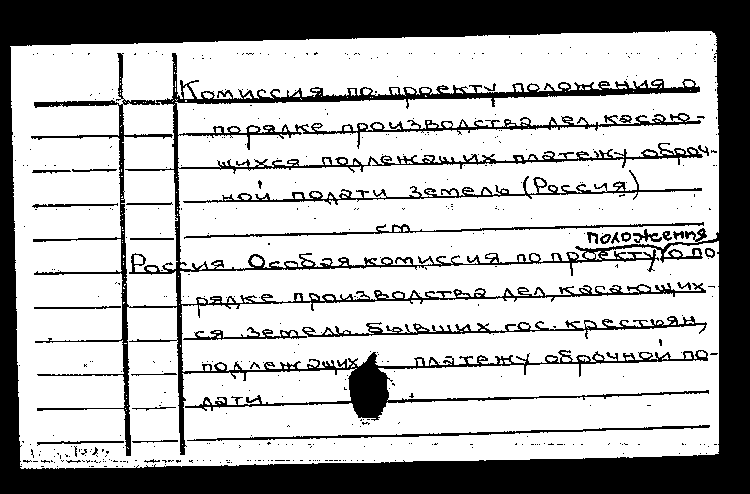 Комиссия по проекту положения о
порядке производства дел, касаю-
щихся подлежащих платежу оброч-
ной подати земель (Россия)
см.
положения
Россия. Особая комиссия по проекту о по-
рядке производства дел, касающих-
ся земель бывших гос. крестьян,
подлежащих платежу оброчной по-
дати.